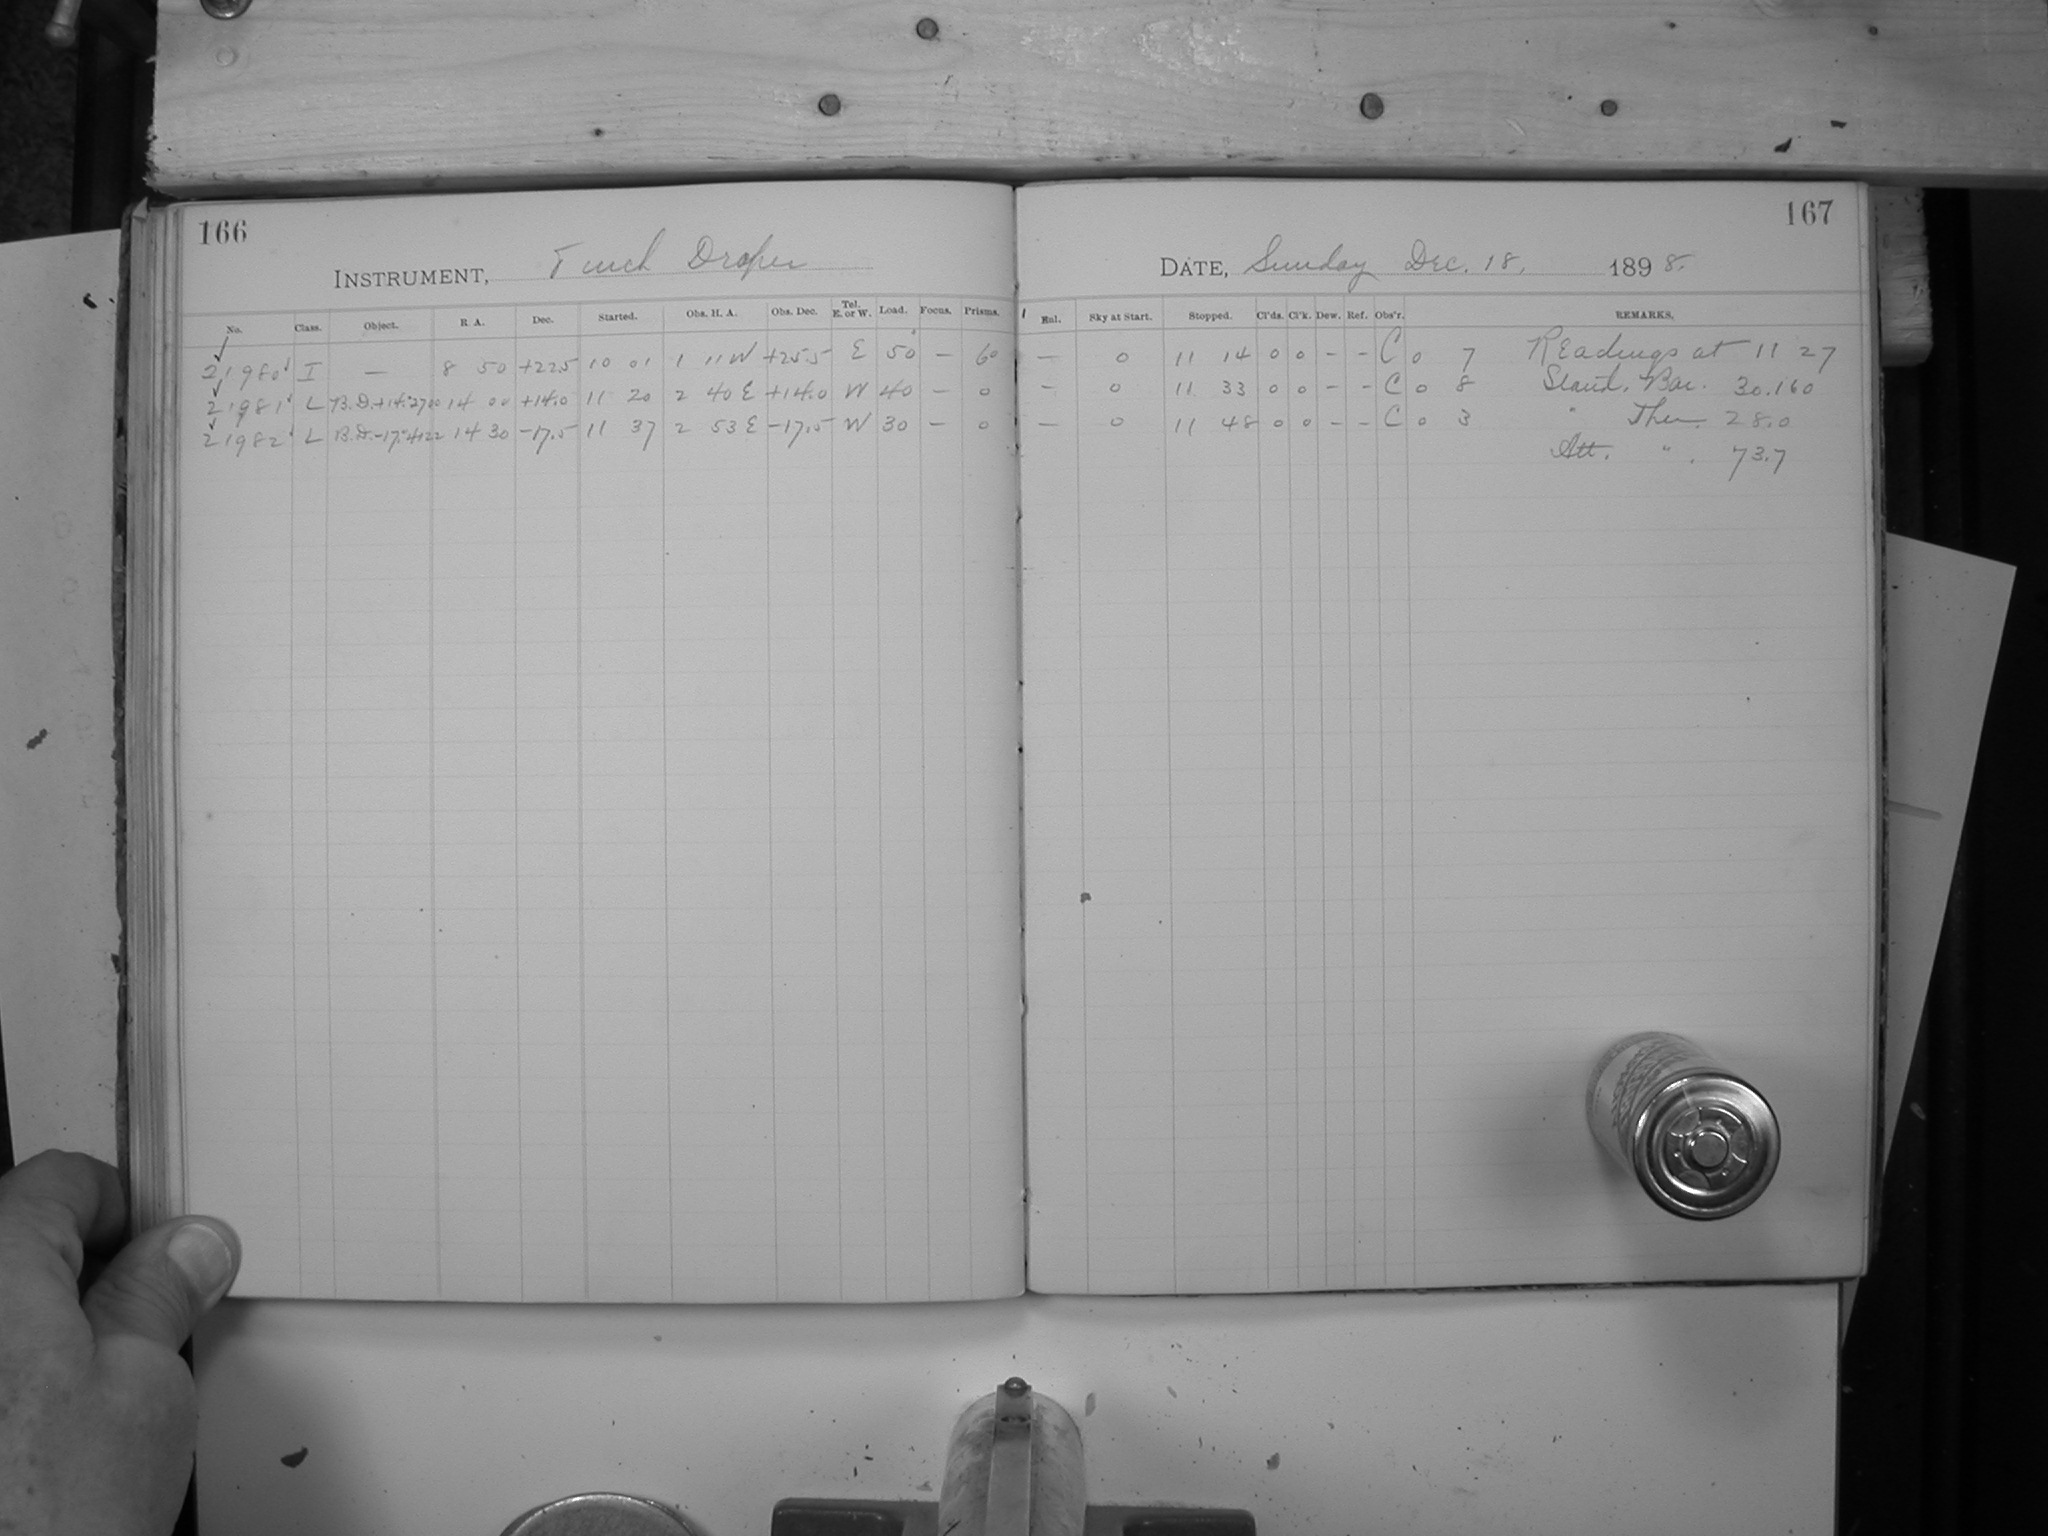 166
INSTRUMENT, Draper
No. Class. Object. R. A. Dec. Started. Obs. H. A. Obs. Dec. Tel. E. or W. Load. Focus. Prisms.
21980 I — 8 50 +22.5 10 01 1 11 W +25.5 E 50 — 60
21981 L B.D.+14°2700 14 00 +14.0 11 20 2 40 E +14.0 W 40 — 0
21982 L B.D.-17°4122 14 30 -17.5 11 37 2 53 E -17.5 W 30 — 0
167
DATE, Sunday Dec. 18, 1898.
Rul. Sky at Start. Stopped. Cl'ds. Cl'k. Dew. Ref. Obs'r. REMARKS.
— 0 11 14 0 0 - - C 0 7 Readings at 11 27
- 0 11 33 0 0 - - C 0 8 Stand. Bar. 30.160
— 0 11 48 0 0 - - C 0 3 " Ther. 28.0
Att. " . 73.7